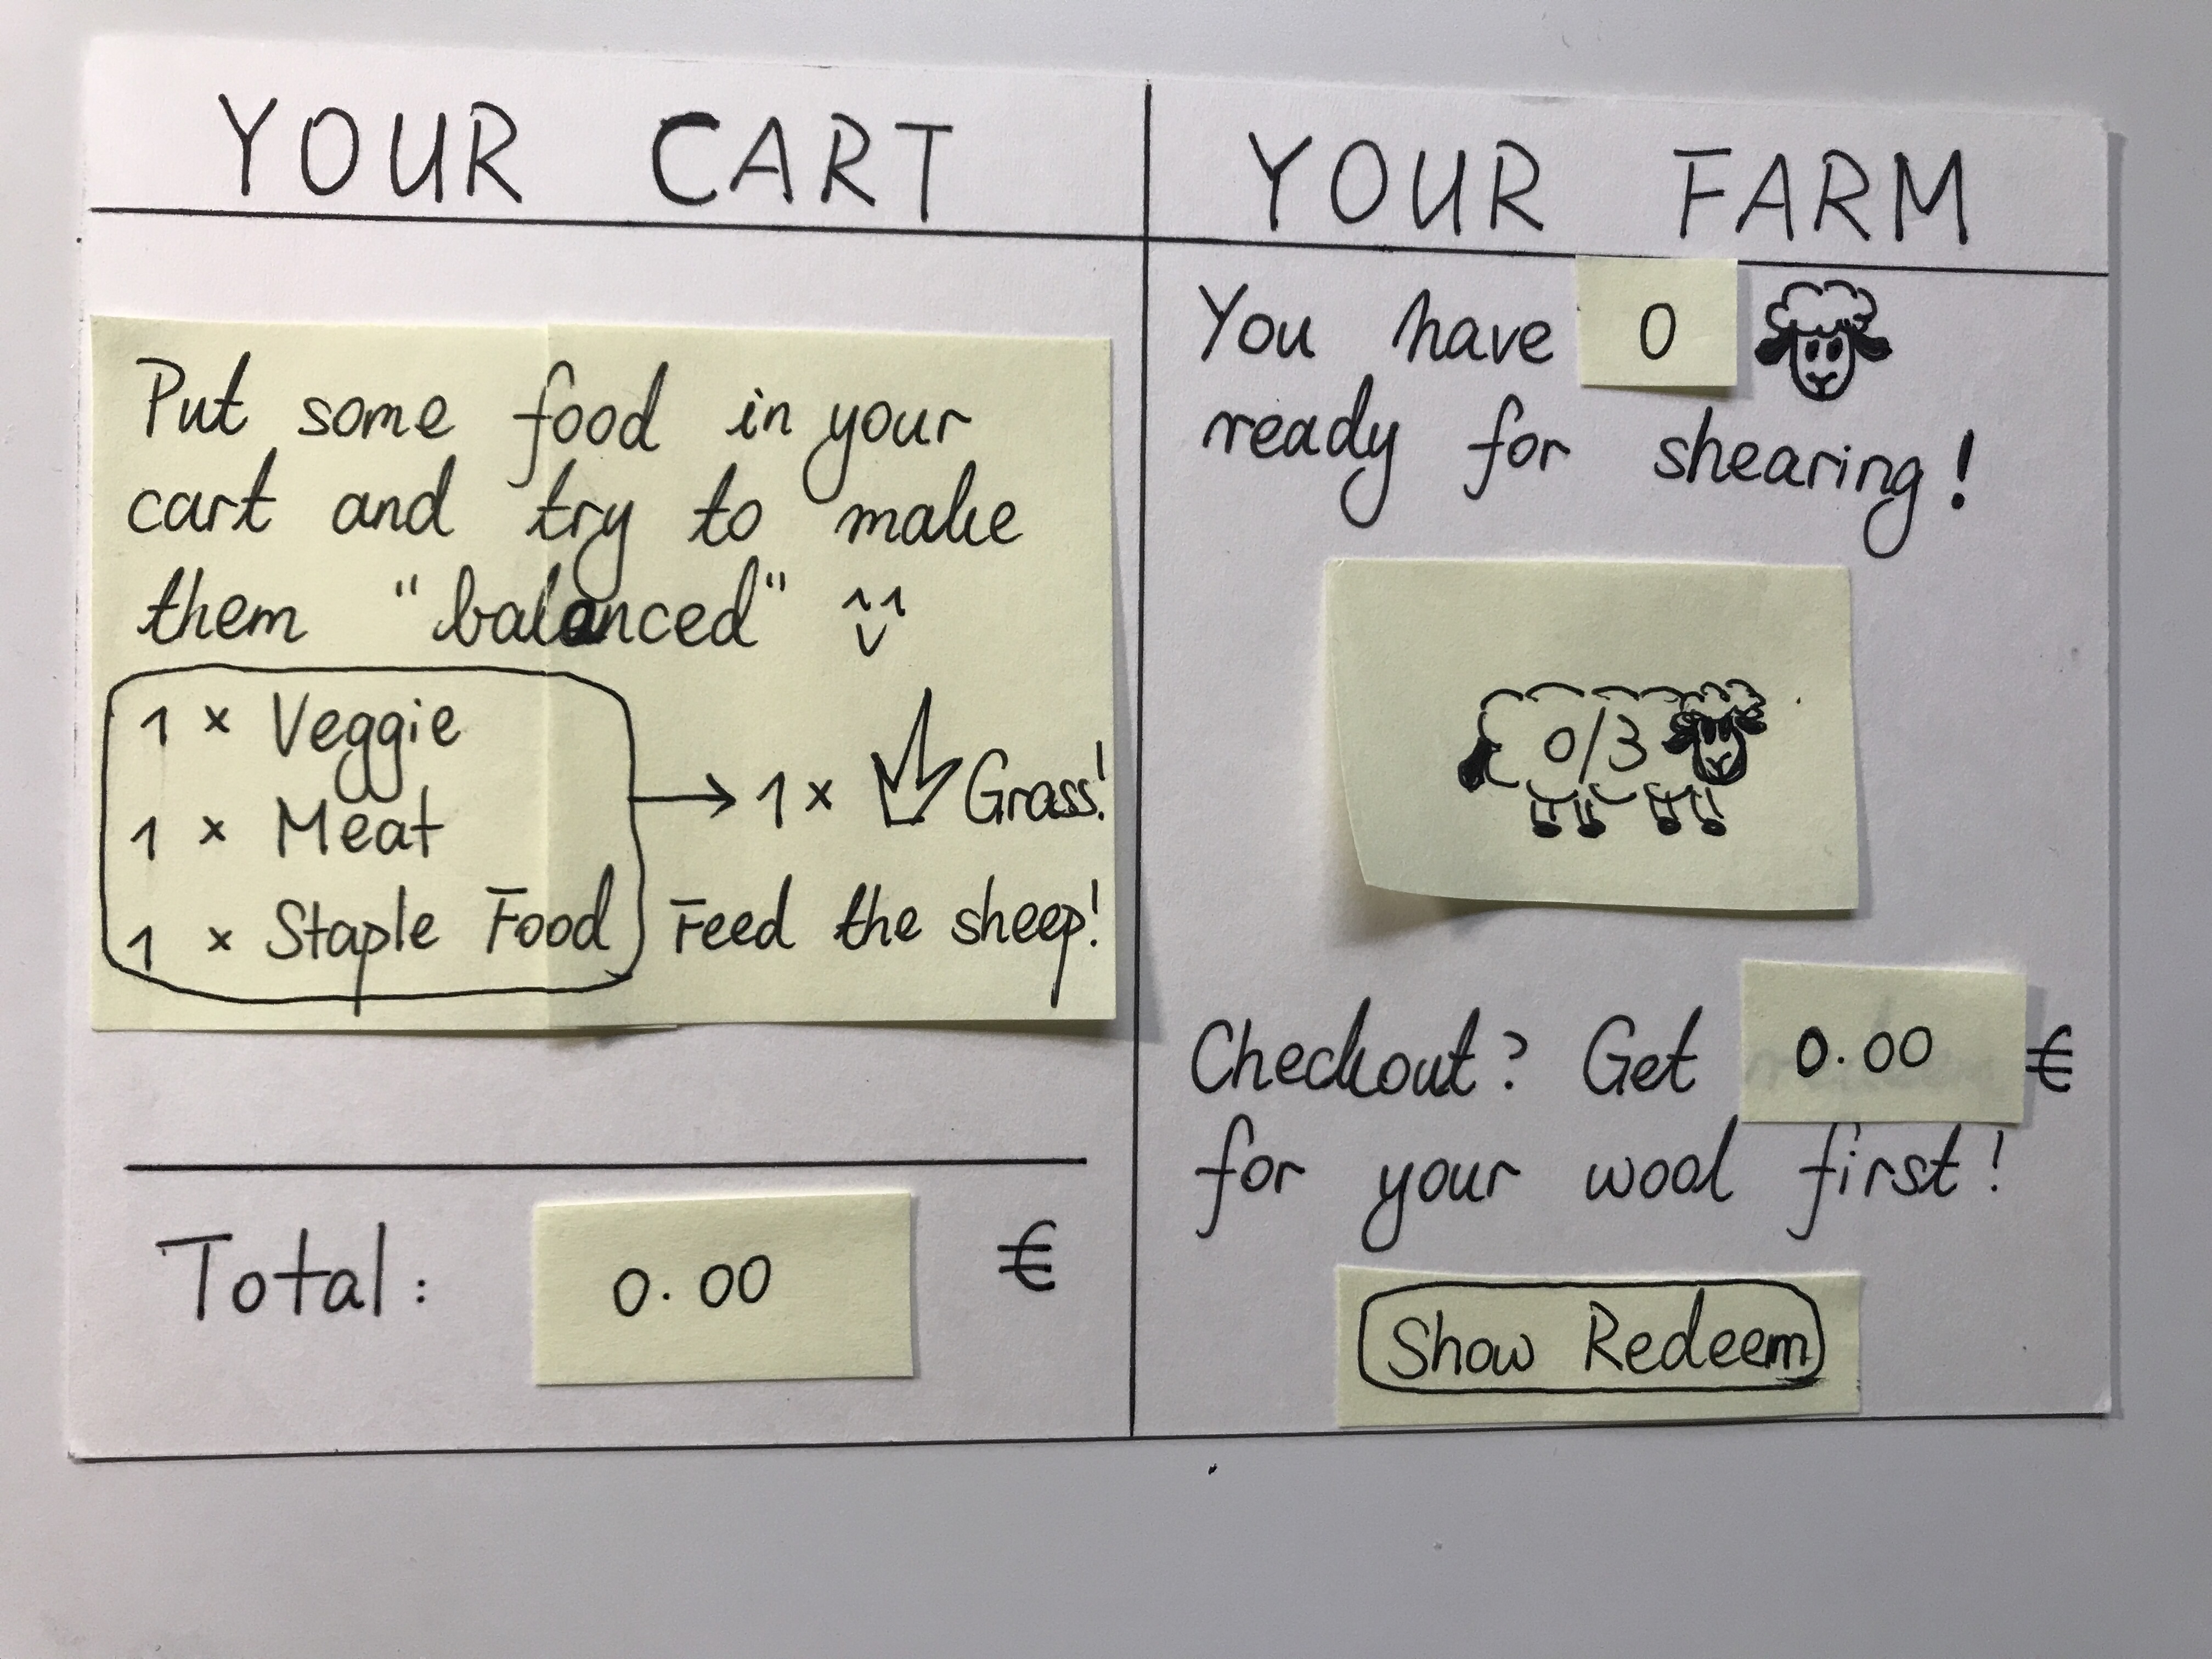 YOUR CART
Put some food in your
cart and try to make
them "balanced"
1 x Veggie
1 x Meat
1 x Staple Food
→ 1 x Grass!
Feed the sheep!
Total: 0.00 €
YOUR FARM
You have 0
ready for shearing!
0/3
Checkout? Get 0.00 €
for your wool first!
Show Redeem